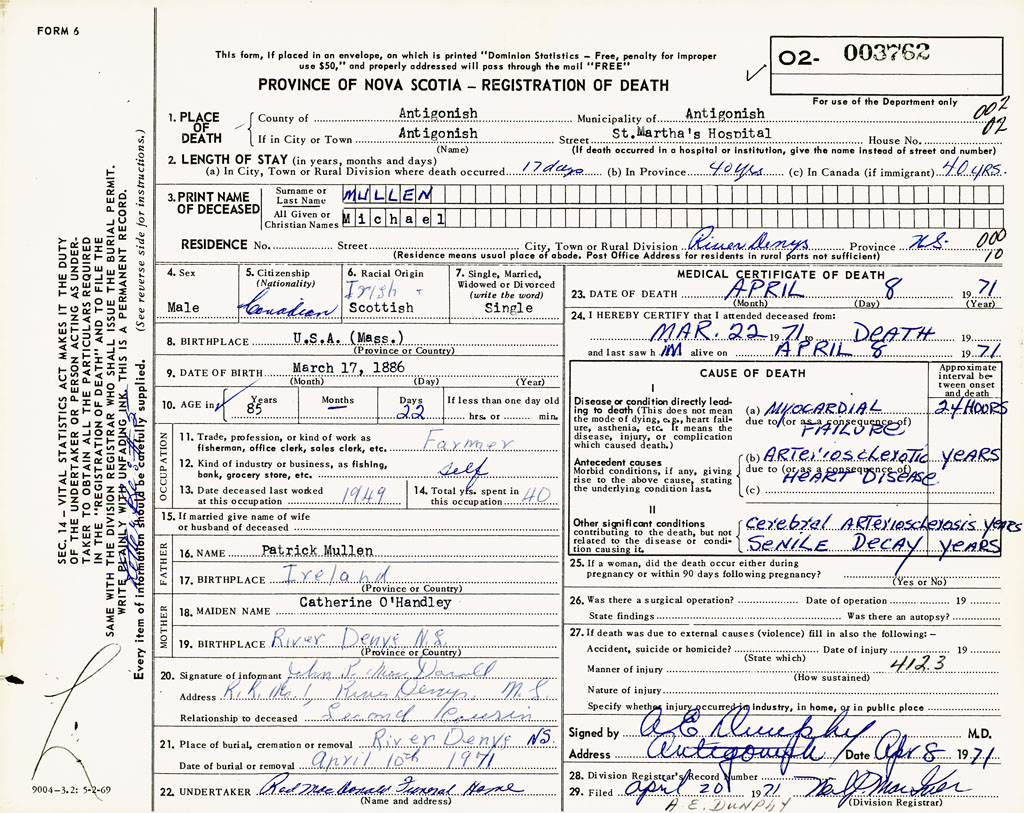 FORM 6
This form, if placed in an envelope, on which is printed "Dominion Statistics – Free, penalty for improper
use $50," and properly addressed will pass through the mail "FREE"
O2- 003762
For use of the Department only
PROVINCE OF NOVA SCOTIA – REGISTRATION OF DEATH
002
02
1. PLACE OF DEATH
County of Antigonish Municipality of Antigonish
If in City or Town Antigonish Street St.Martha's Hospital House No.
(Name) (If death occurred in a hospital or institution, give the name instead of street and number)
2. LENGTH OF STAY (in years, months and days)
(a) In City, Town or Rural Division where death occurred 17 days (b) In Province 40 yrs (c) In Canada (if immigrant) 40 YRS.
3. PRINT NAME OF DECEASED
Surname or Last Name MULLEN
All Given or Christian Names Michael
RESIDENCE No. Street City, Town or Rural Division River Denys Province N.S. 000
10
(Residence means usual place of abode. Post Office Address for residents in rural parts not sufficient)
4. Sex
Male
5. Citizenship
(Nationality)
Canadian
6. Racial Origin
Irish -
Scottish
7. Single, Married,
Widowed or Divorced
(write the word)
Single
8. BIRTHPLACE U.S.A. (Mass.)
(Province or Country)
9. DATE OF BIRTH March 17, 1886
(Month) (Day) (Year)
10. AGE in Years Months Days If less than one day
85 — 22 hrs. or min.
OCCUPATION
11. Trade, profession, or kind of work as
fisherman, office clerk, sales clerk, etc. Farmer
12. Kind of industry or business, as fishing,
bank, grocery store, etc. self
13. Date deceased last worked
at this occupation 1949
14. Total yrs. spent in
this occupation 40
15. If married give name of wife
or husband of deceased
FATHER
16. NAME Patrick Mullen
17. BIRTHPLACE Ireland
(Province or Country)
MOTHER
18. MAIDEN NAME Catherine O'Handley
19. BIRTHPLACE River Denys N.S.
(Province or Country)
20. Signature of informant John R. MacDonald
Address R.R. No. 1, River Denys. N.S.
Relationship to deceased Second Cousin
21. Place of burial, cremation or removal River Denys NS.
Date of burial or removal April 10th 1971
22. UNDERTAKER Rod MacDonald Funeral Home
(Name and address)
MEDICAL CERTIFICATE OF DEATH
23. DATE OF DEATH APRIL 8 1971
(Month) (Day) (Year)
24. I HEREBY CERTIFY that I attended deceased from:
MAR. 22 1971 to DEATH 19
and last saw h IM alive on APRIL 8 1971
CAUSE OF DEATH
Approximate
interval be-
tween onset
and death
I
Disease or condition directly lead-
ing to death (This does not mean
the mode of dying, e.g., heart fail-
ure, asthenia, etc. It means the
disease, injury, or complication
which caused death.)
(a) MYOCARDIAL 24 HOURS
due to (or as a consequence of)
FAILURE
Antecedent causes
Morbid conditions, if any, giving
rise to the above cause, stating
the underlying condition last.
(b) ARTeriosclerotic YEARS
due to (or as a consequence of)
HEART DISEASE
(c)
II
Other significant conditions
contributing to the death, but not
related to the disease or condi-
tion causing it.
Cerebral ARTeriosclerosis years
SeNILE DECAY YEARS
25. If a woman, did the death occur either during
pregnancy or within 90 days following pregnancy?
(Yes or No)
26. Was there a surgical operation? Date of operation 19
State findings Was there an autopsy?
27. If death was due to external causes (violence) fill in also the following: –
Accident, suicide or homicide? Date of injury 19
(State which) 412.3
Manner of injury
(How sustained)
Nature of injury
Specify whether injury occurred in industry, in home, or in public place
Signed by A E Dunphy M.D.
Address Antigonish Date Apr 8 1971
28. Division Registrar's Record Number
29. Filed April 20 1971
(Division Registrar)
A E. DUNPHY
SEC. 14 – VITAL STATISTICS ACT MAKES IT THE DUTY
OF THE UNDERTAKER OR PERSON ACTING AS UNDER-
TAKER TO OBTAIN ALL THE PARTICULARS REQUIRED
IN THE "REGISTRATION OF DEATH" AND TO FILE THE
SAME WITH THE DIVISION REGISTRAR WHO SHALL ISSUE THE BURIAL PERMIT.
WRITE PLAINLY WITH UNFADING INK. THIS IS A PERMANENT RECORD.
Every item of information should be carefully supplied. (See reverse side for instructions.)
9004-3.2: 5-2-69